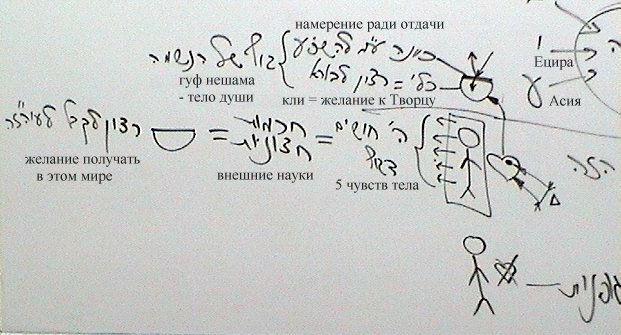 намерение ради отдачи
כוונה ע"מ להשפיע
גוף של הנשמה
Ецира
гуф нешама
- тело души
כלי = רצון לבורא
кли = желание к Творцу
Асия
רצון לקבל
=
חכמות
חצוניות
=
ה' חושים
דגוף
желание получать
в этом мире
внешние науки
5 чувств тела